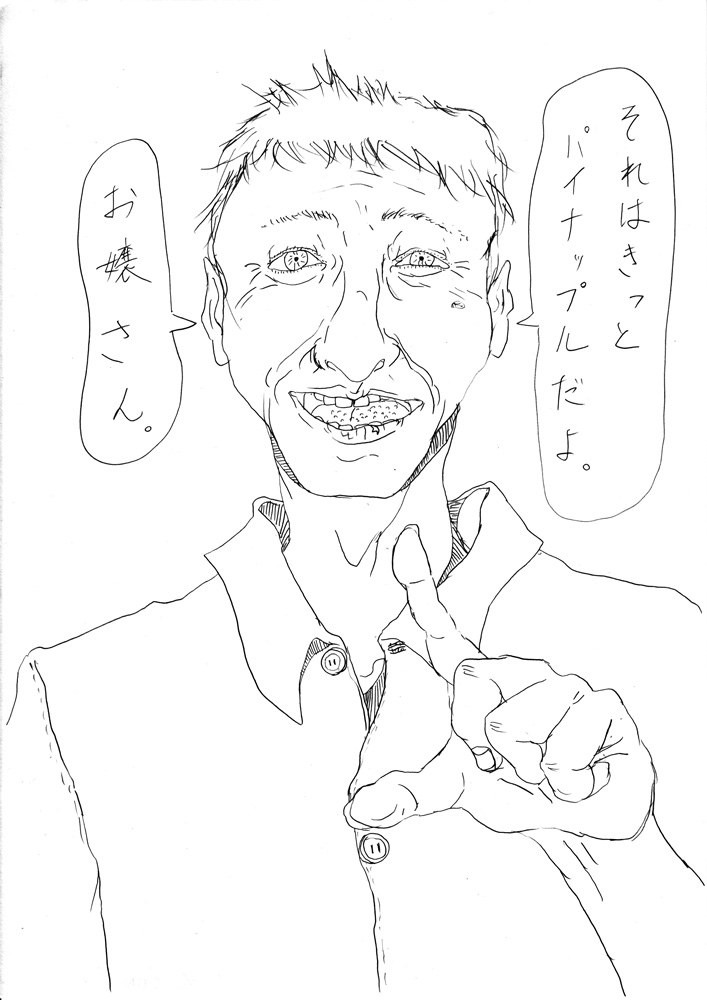 それはきっと
パイナップルだよ。
お嬢さん。